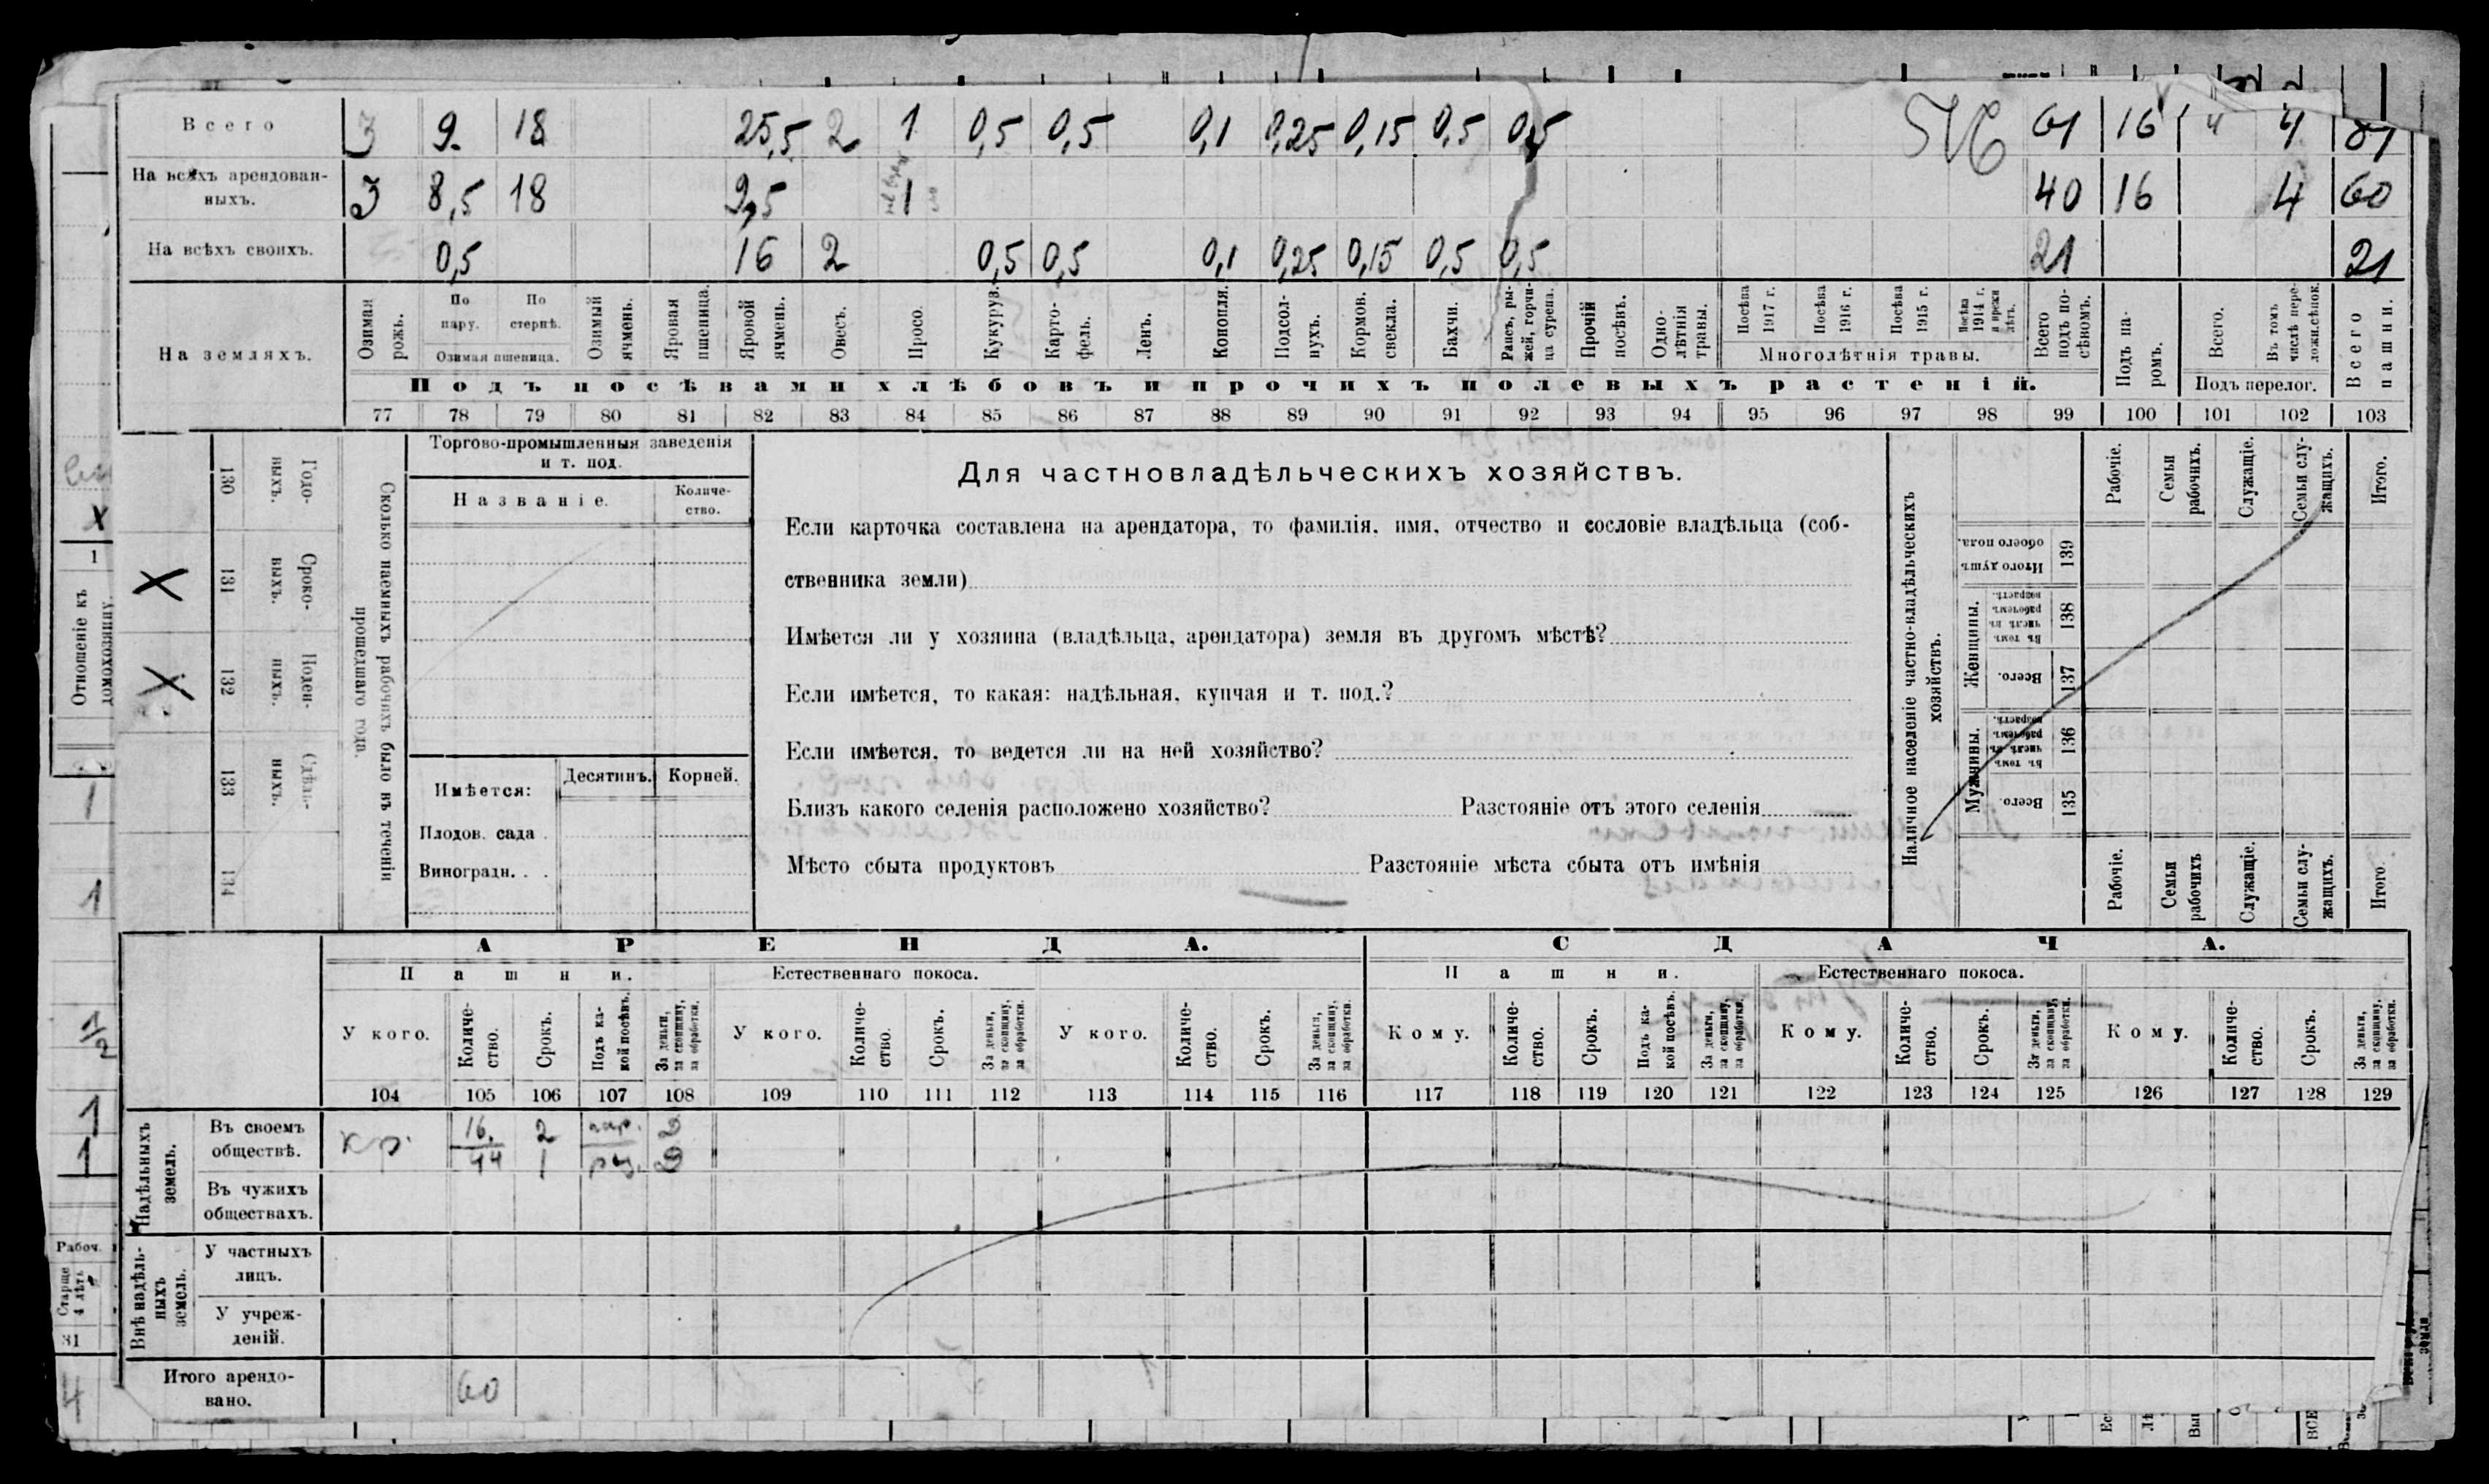 Всего 3 9 18 25,5 2 1 0,5 0,5 0,1 0,25 0,15 0,5 0,5 61 16 4 4 81
На всѣхъ арендован-
ныхъ. 3 8,5 18 9,5 1 40 16 4 60
На всѣхъ своихъ. 0,5 16 2 0,5 0,5 0,1 0,25 0,15 0,5 0,5 21 21
На земляхъ.
Озимая рожь.
По пару.
По стернѣ.
Озимая пшеница.
Озимый ячмень.
Яровая пшеница.
Яровой ячмень.
Овесъ.
Просо.
Кукуруз.
Карто-
фель.
Ленъ.
Конопля.
Подсол-
нухъ.
Кормов.
свекла.
Бахчи.
Рапсъ, ры-
жей, горчи-
ца сурепа.
Прочій
посѣвъ.
Одно-
лѣтнія
травы.
Посѣва
1917 г.
Посѣва
1916 г.
Посѣва
1915 г.
Посѣва
1914 г.
и прежн
лѣтъ.
Многолѣтнія травы.
Всего
подъ по-
сѣвомъ.
Подъ па-
ромъ.
Всего.
Въ томъ
числѣ пере-
лож.сѣнок.
Подъ перелог.
Всего
пашни.
Подъ посѣвами хлѣбовъ и прочихъ полевыхъ растеній.
77 78 79 80 81 82 83 84 85 86 87 88 89 90 91 92 93 94 95 96 97 98 99 100 101 102 103
X
1
Отношеніе къ
домохозяину.
X
X
130 131 132 133 134
Годо-
выхъ.
Сроко-
выхъ.
Поден-
ныхъ.
Сдѣль-
ныхъ.
Сколько наемныхъ рабочихъ было въ теченіи
прошедшаго года.
Торгово-промышленныя заведенія
и т. под.
Названіе.
Количе-
ство.
Имѣется:
Десятинъ.
Корней.
Плодов. сада .
Виноградн. . .
Для частновладѣльческихъ хозяйствъ.
Если карточка составлена на арендатора, то фамилія, имя, отчество и сословіе владѣльца (соб-
ственника земли)
Имѣется ли у хозяина (владѣльца, арендатора) земля въ другомъ мѣстѣ?
Если имѣется, то какая: надѣльная, купчая и т. под.?
Если имѣется, то ведется ли на ней хозяйство?
Близъ какого селенія расположено хозяйство? Разстояніе отъ этого селенія
Мѣсто сбыта продуктовъ Разстояніе мѣста сбыта отъ имѣнія
Наличное населеніе частно-владѣльческихъ
хозяйствъ.
Рабочіе.
Семьи
рабочихъ.
Служащіе.
Семьи слу-
жащихъ.
Итого.
Итого душъ
обоего пола.
139
Женщины.
Въ томъ
числѣ въ
рабочемъ
возрастѣ.
138
Всего.
137
Мужчины.
Въ томъ
числѣ въ
рабочемъ
возрастѣ.
136
Всего.
135
Рабочіе.
Семьи
рабочихъ
Служащіе.
Семьи слу-
жащихъ.
Итого.
АРЕНДА.
СДАЧА.
Пашни.
Естественнаго покоса.
Пашни.
Естественнаго покоса.
У кого.
Количе-
ство.
Срокъ.
Подъ ка-
кой посѣвъ.
За деньги,
за скопщину,
за обработки.
У кого.
Количе-
ство.
Срокъ.
За деньги,
за скопщину,
за обработки.
У кого.
Количе-
ство.
Срокъ.
За деньги,
за скопщину,
за обработки.
Кому.
Количе-
ство.
Срокъ.
Подъ ка-
кой посѣвъ.
За деньги,
за скопщину,
за обработки.
Кому.
Количе-
ство.
Срокъ.
За деньги,
за скопщину,
за обработки.
Кому.
Количе-
ство.
Срокъ.
За деньги,
за скопщину,
за обработки.
104 105 106 107 108 109 110 111 112 113 114 115 116 117 118 119 120 121 122 123 124 125 126 127 128 129
Надѣльныхъ
земель.
Въ своемъ
обществѣ.
кр. 16. 2 пар. Д
44 1 Д
Въ чужихъ
обществахъ.
Внѣ надѣль-
ныхъ
земель.
У частныхъ
лицъ.
У учреж-
деній.
Итого арендо-
вано. 60
1
1
1/2
1
1
Рабоч.
Старше
4 лѣтъ.
31
4